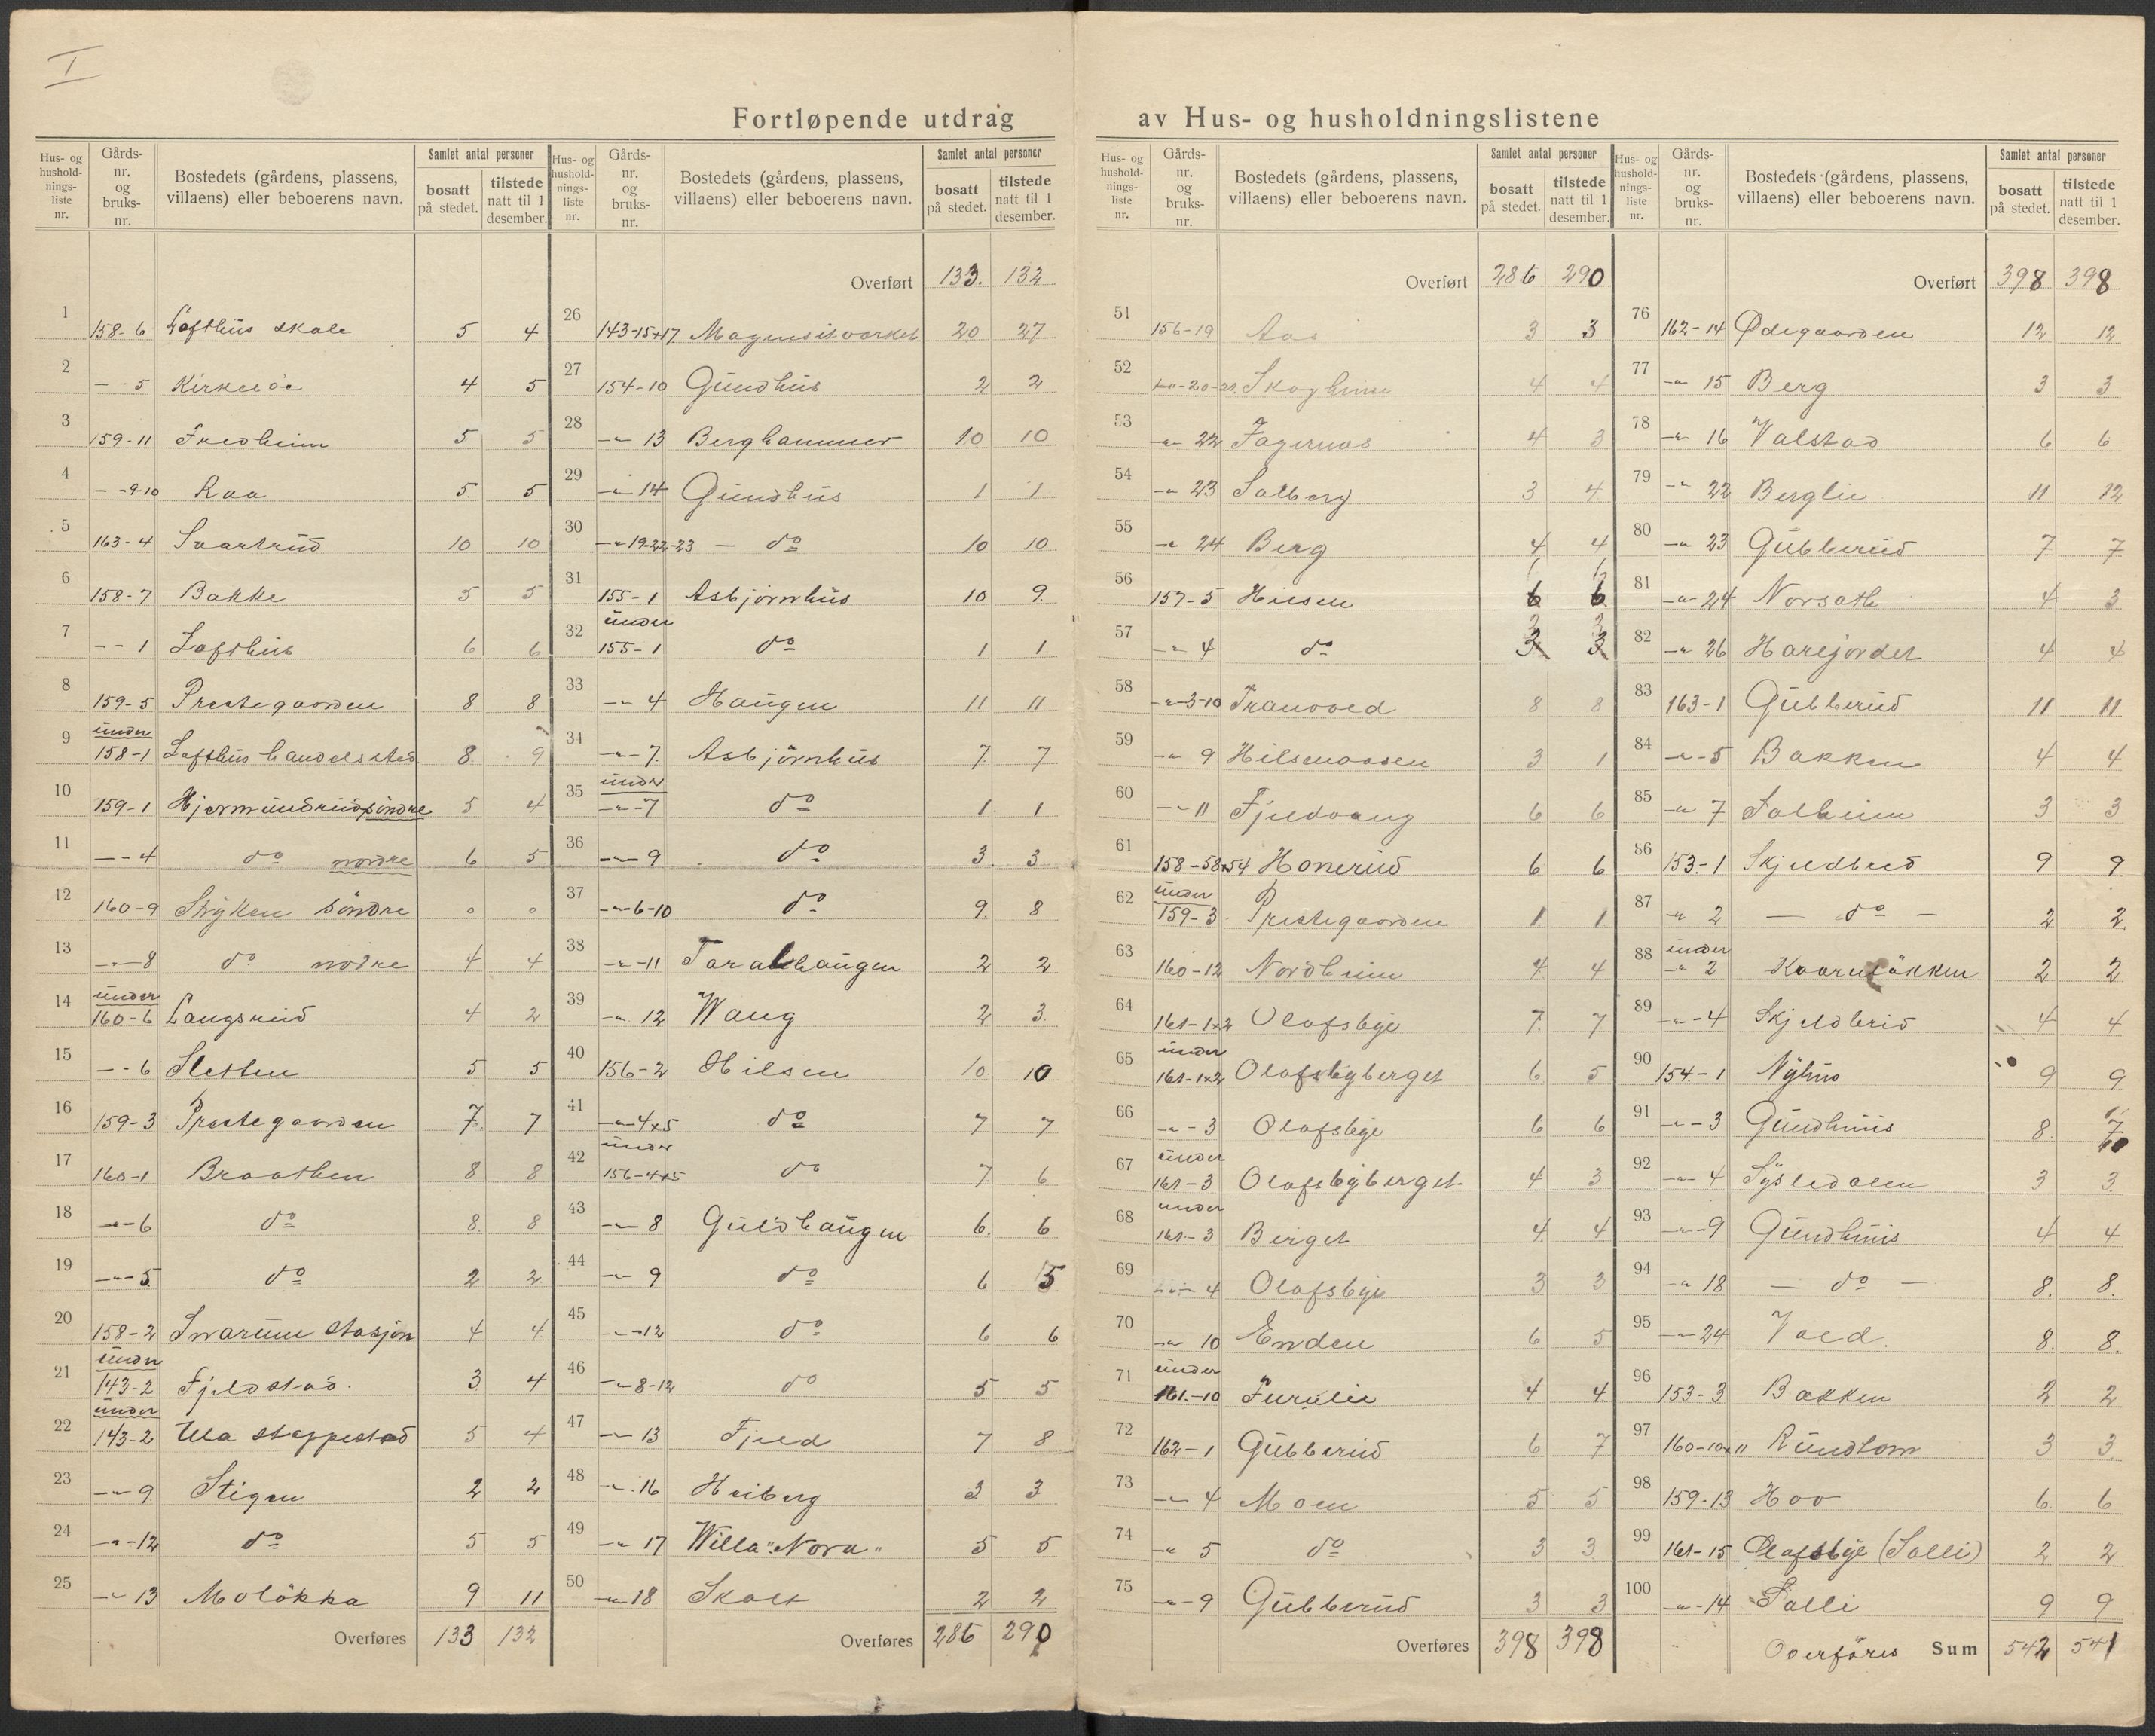 I
Fortløpende utdrag av Hus- og husholdningslistene
Hus- og husholdnings-liste nr. | Gårds-nr. og bruks-nr. | Bostedets (gårdens, plassens, villaens) eller beboerens navn. | Samlet antal personer | bosatt på stedet. | tilstede natt til 1 desember.
1 158-6 Lofthus skole 5 4
2 - - 5 Kirkebøe 4 5
3 159-11 Fredheim 5 5
4 - -9-10 Raa 5. 5
5 163-4 Svartrud 10 10
6 158-7 Bakke 5 5
7 - - 1 Lofthus 6 6
8 159-5 Prestegaarden 8 8
9 under 158-1 Lofthus handelsted 8. 9
10 159-1 Hjermundrud søndre 5 4
11 - - 4 do nordre 6 5
12 160-9 Stryken søndre 0 0
13 -"-8 do nodre 4 4
14 under 160-6 Langsrud 4 2
15 - - 6 Sletten 5 5
16 159-3 Prestegaarden 7 7
17 160-1 Braathen 8 8
18 -"-6 do 8. 8
19 -"-5 do 2 2
20 158-2 Snarum stasjon 4 4
21 under 143-2 Fjeldstad. 3 4
22 under 143-2 Ula stoppested 5 4
23 -"-9 Stigen 2 2
24 -"-12 do 5 5
25 -"-13 Moløkka 9 11
Overføres 133 132
Overført 133. 132
26 143-15+17. Magnesitverket 20 27
27 154-10 Gundhus 2 2
28 -"- 13 Berghammer 10 10
29 -"-14 Gundhus 1 1
30 -"-19-22-23 - do 10 10
31 155-1 Asbjørnhus 10 9.
32 under 155-1 do 1 1
33 -"-4 Haugen 11 11
34 -"-7. Asbjørnhus 7. 7
35 under -"-7 do 1. 1
36 -"-9 do 3. 3
37 -"-6-10 do 9. 8
38 -"-11 Taralhaugen 2 2
39 -"-12 Waug 2 3.
40 156-2 Hilsen 10. 10
41 -"-4x5 do 7 7
42 under 156-4x5 do 7. 6
43 -"-8 Guldhaugen 6. 6
44 -"-9 do 6 5
45 -"-12 do 6 6
46 -"-8-12 do 5 5
47 -"-13 Fjeld 7 8
48 -"-16 Heiberg 3 3
49 -"-17 Willa "Nora" 5 5
50 -"-18 Skalt 2 2
Overføres 286 290
Overført 286 290
51 156-19 Aas 3 3
52 -"-20-21. Skogheim 4 4
53 -"-22 Fagernes 4 3
54 -"-23 Solberg 3 4
55 -"-24 Berg 4 4
56 157-5 Hilsen 6 6
57 -"-4 do 3 3
58 -"-3-10 Tranvold 8 8
59 -"-9 Hilsenaasen 3 1
60 -"-11 Fjeldvang 6 6
61 158-58x54 Honerud 6 6
62 under 159-3. Prestegaarden 1 1
63 160-12 Nordheim 4. 4
64 161-1x2 Olafsbye 7. 7
65 under 161-1x2 Olafsbyberget 6 5
66 -"-3 Olafsbye 6 6
67 under 161-3 Olafsbyberget 4 3
68 under 161-3 Berget 4. 4.
69 -"-4 Olafsbye 3 3
70 -"-10 Enden 6 5
71 under 161.-10 Furulie 4 4
72 162-1 Gubberud 6 7
73 -"-4 Moen 5 5
74 -"-5 do 3 3
75 -"-9 Gubberud 3 3
Overføres 398 398
Overført 398 398
76 162-14 Ødegaarden 12 12
77 -"-15 Berg 3 3
78 -"-16 Valstad 6 6
79 -"-22 Berglie 11 12
80 -"-23 Gubberud 7 7
81 -"-24 Norsath 4 3
82 -"-26 Harejordet 4 4
83 163-1 Gubberud 11 11
84 -"-5 Bakken 4 4
85 -"-7 Solheim 3 3
86 153.-1 Skjeldbred 9 9.
87 -"-2 - do - 2 2.
88 under -"-2 Kvernløkken 2 2
89 -"-4 Skjeldbrid 4 4
90 154.-1 Nyhus 9 9
91 -"-3 Gundhuus 8. 10
92 -"-4 Sysledalen 3 3.
93 -"-9 Gundhuus 4 4
94 -"-18 - do - 8. 8.
95 -"-24 Vold. 8. 8.
96 153-3 Bakken 2 2
97 160-10x11 Rundtom 3 3.
98 159-13 Hov 6. 6
99 161-15 Olafsbye (Solli) 2 2
100 -"-14 Solli 9 9
Overføres Sum 542 541